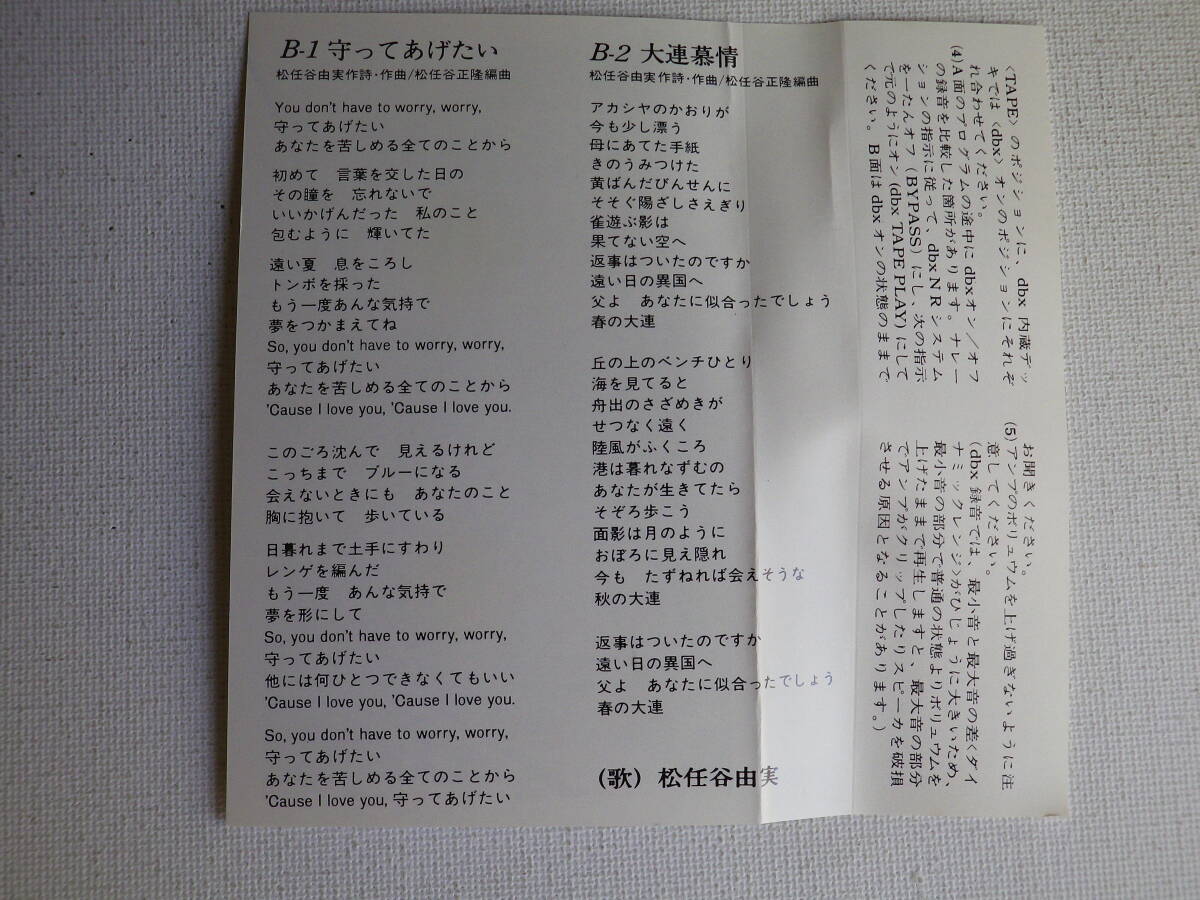 B-1 守ってあげたい
松任谷由実作詩・作曲/松任谷正隆編曲
You don't have to worry, worry,
守ってあげたい
あなたを苦しめる全てのことから
初めて 言葉を交した日の
その瞳を 忘れないで
いいかげんだった 私のこと
包むように 輝いてた
遠い夏 息をころし
トンボを採った
もう一度あんな気持で
夢をつかまえてね
So, you don't have to worry, worry,
守ってあげたい
あなたを苦しめる全てのことから
'Cause I love you, 'Cause I love you.
このごろ沈んで 見えるけれど
こっちまで ブルーになる
会えないときにも あなたのこと
胸に抱いて 歩いている
日暮れまで土手にすわり
レンゲを編んだ
もう一度 あんな気持で
夢を形にして
So, you don't have to worry, worry,
守ってあげたい
他には何ひとつできなくてもいい
'Cause I love you, 'Cause I love you.
So, you don't have to worry, worry,
守ってあげたい
あなたを苦しめる全てのことから
'Cause I love you, 守ってあげたい
B-2 大連慕情
松任谷由実作詩・作曲/松任谷正隆編曲
アカシヤのかおりが
今も少し漂う
母にあてた手紙
きのうみつけた
黄ばんだびんせんに
そそぐ陽ざしさえぎり
雀遊ぶ影は
果てない空へ
返事はついたのですか
遠い日の異国へ
父よ あなたに似合ったでしょう
春の大連
丘の上のベンチひとり
海を見てると
舟出のさざめきが
せつなく遠く
陸風がふくころ
港は暮れなずむの
あなたが生きてたら
そぞろ歩こう
面影は月のように
おぼろに見え隠れ
今も たずねれば会えそうな
秋の大連
返事はついたのですか
遠い日の異国へ
父よ あなたに似合ったでしょう
春の大連
(歌) 松任谷由実
〈TAPE〉のポジションに、dbx 内蔵デッ
キでは〈dbx〉オンのポジションにそれぞ
れ合わせてください。
(4)A面のプログラムの途中にdbxオン／オフ
の録音を比較した箇所があります。ナレー
ションの指示に従って、dbx NR システム
を一たんオフ(BYPASS)にし、次の指示
で元のようにオン(dbx TAPE PLAY)にして
ください。B面はdbxオンの状態のままで
お聞きください。
(5)アンプのボリュウムを上げ過ぎないように注
意してください。
(dbx 録音では、最小音と最大音の差〈ダイ
ナミックレンジ〉がひじょうに大きいため、
最小音の部分で普通の状態よりボリュウムを
上げたままで再生しますと、最大音の部分
でアンプがクリップしたりスピーカを破損
させる原因となることがあります。)